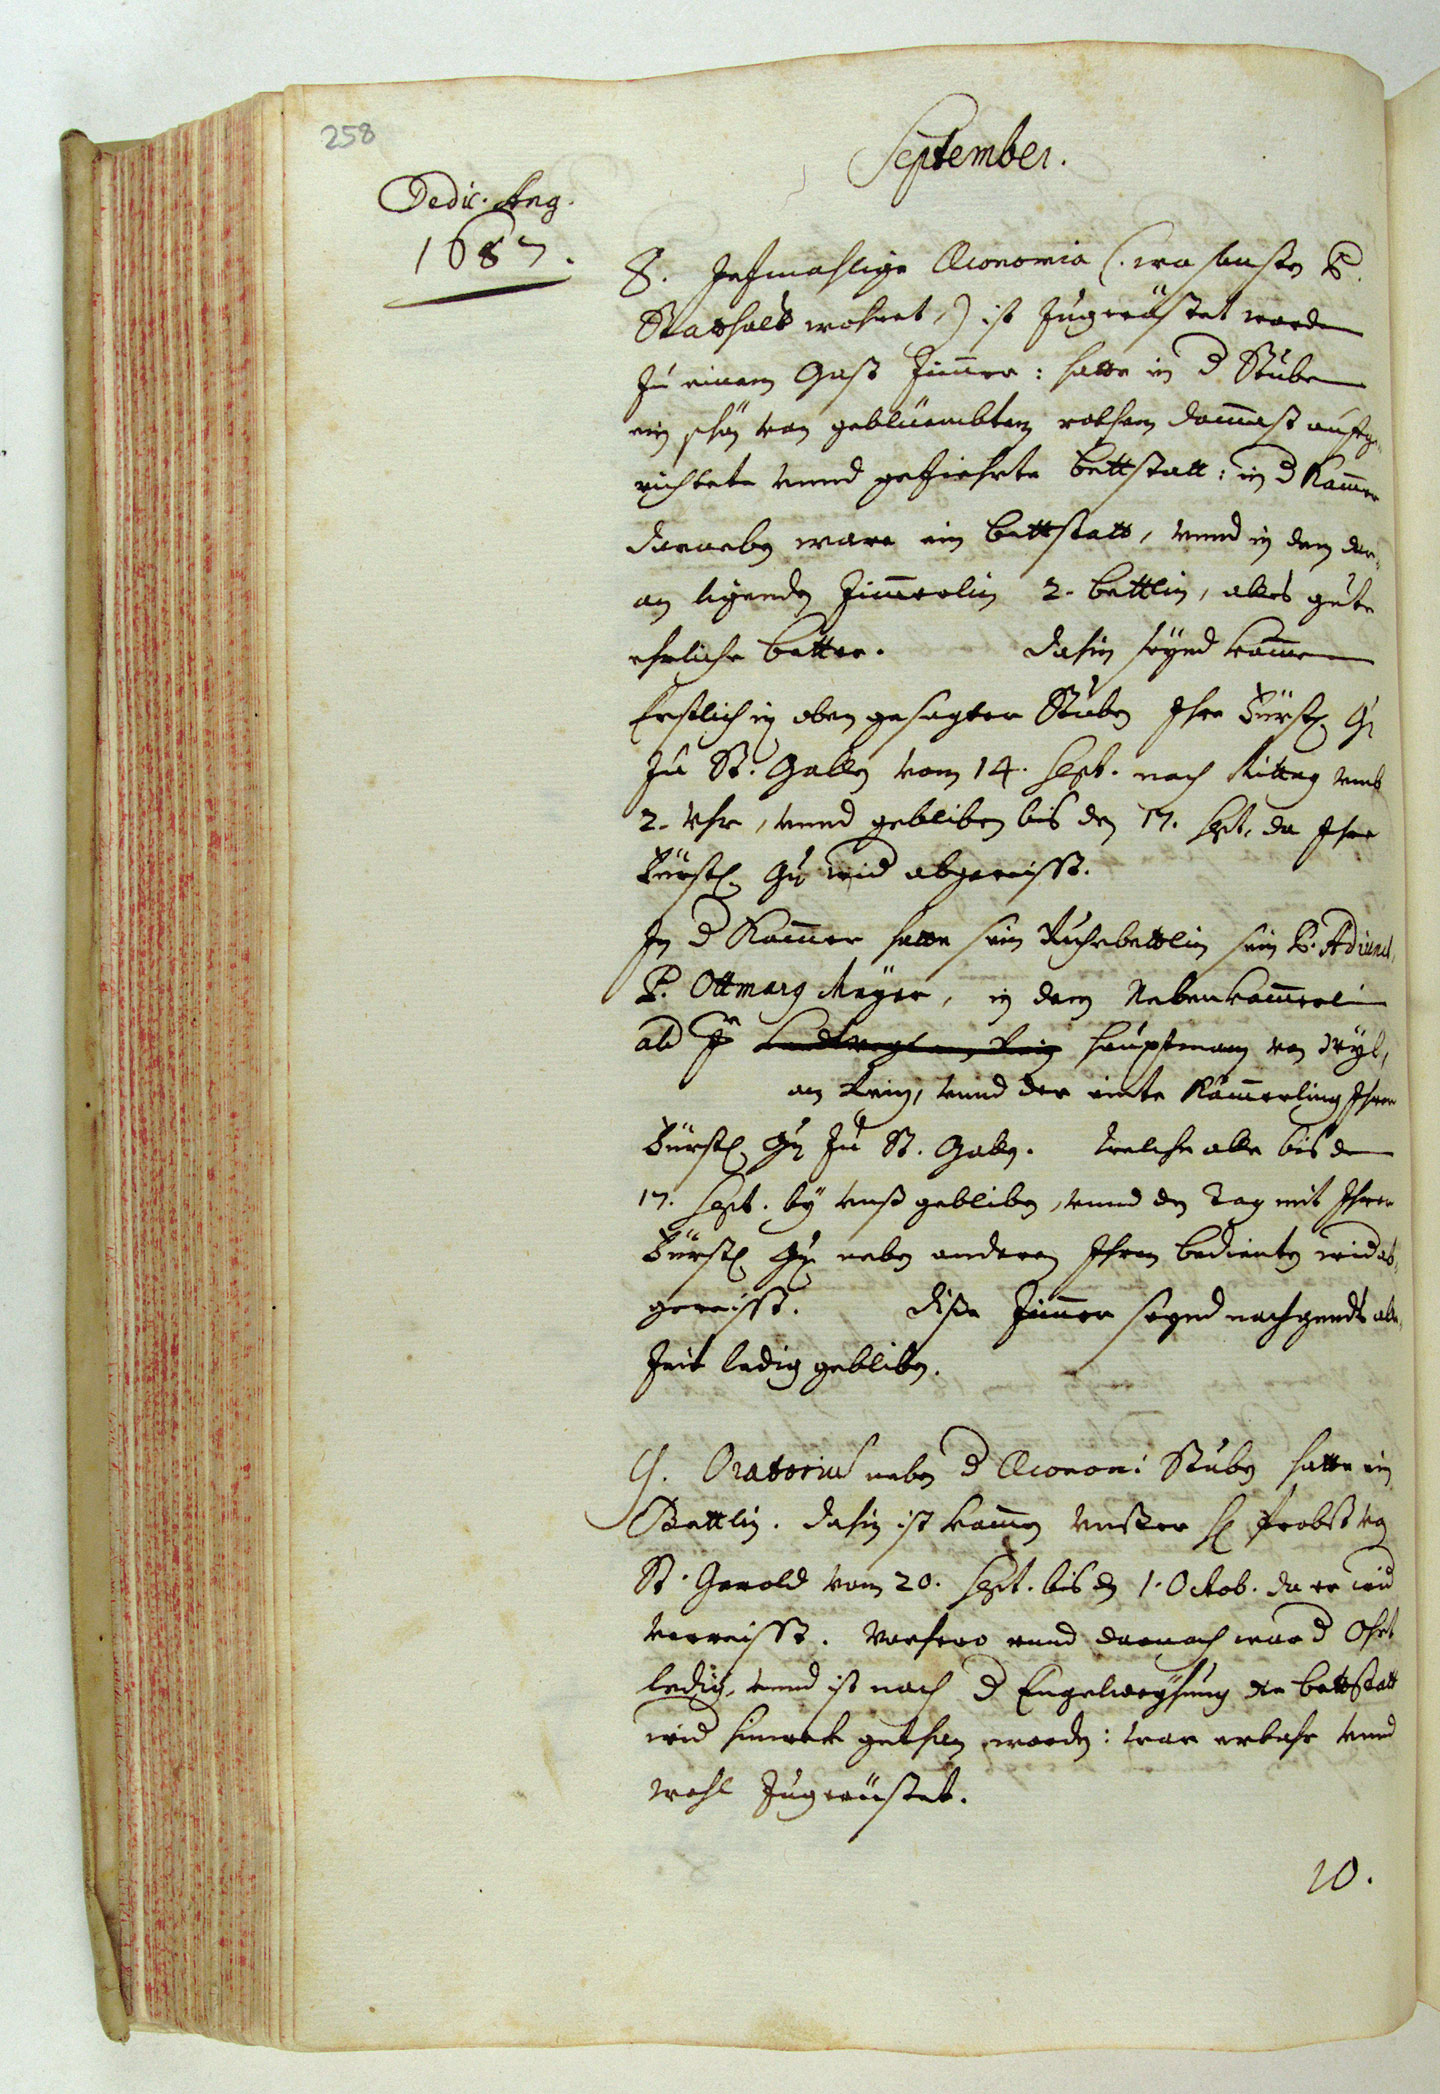 258
September.
Dedic. Ang.
1687.
8. Jetzmahlige Œconomia (. wo sonsten P.
Statthalt wohnet,) ist zugerüstet worden
zu einem Gast Zimmer: hatte in d Stuben
ein schön von geblüembten rothem dammast aufge-
richtete vnnd gezierte bettstatt: in d Kammer
darneben ware ein bettstatt, vnnd in dem dar-
an ligenden Zimmerlin 2. bettlin, alles gute
ehrliche better. Dahin seynd kommen
Erstlich in oben gesagter Stuben Ihre Fürstl. Gn
zu St. Gallen vom 14. Sept. nach Mittag vmb
2. Vhr, vnnd gebliben bis den 17. Sept. da Ihre
Fürstl. Gn wid abgereisst.
In d Kammer hatte sein Ruhebettlin sein P. Adiunct,
P. Ottmarg Meyer, in dem Nebenkammerli
ald Jr Hauptmann von Wyl,
am Rein, vnnd der eint Kammerling Ihrer
Fürstl. Gn zu St. Gallen. Welche alle bis den
17. Sept. by vnß gebliben, vnnd den Tag mit Ihrer
Fürstl. Gn neben anderen Ihren bedienten wid ab-
gereisst. Dise Zimmer seynd nachgends alle-
zeit ledig gebliben.
9. Oratorium neben d Œconomi Stuben hatte ein
Bettlin. Dahin ist kommen vnßer H. Probst von
St. Gerold vom 20. Sept. bis den 1. Octob. da er wid
verreisst. Vorhero vnnd darnach war d Ohrt
ledig, vnnd ist nach d Engelweyhung die bettstatt
wid hinweck gethan worden: war erbahr vnnd
wohl zugerüstet.
10.